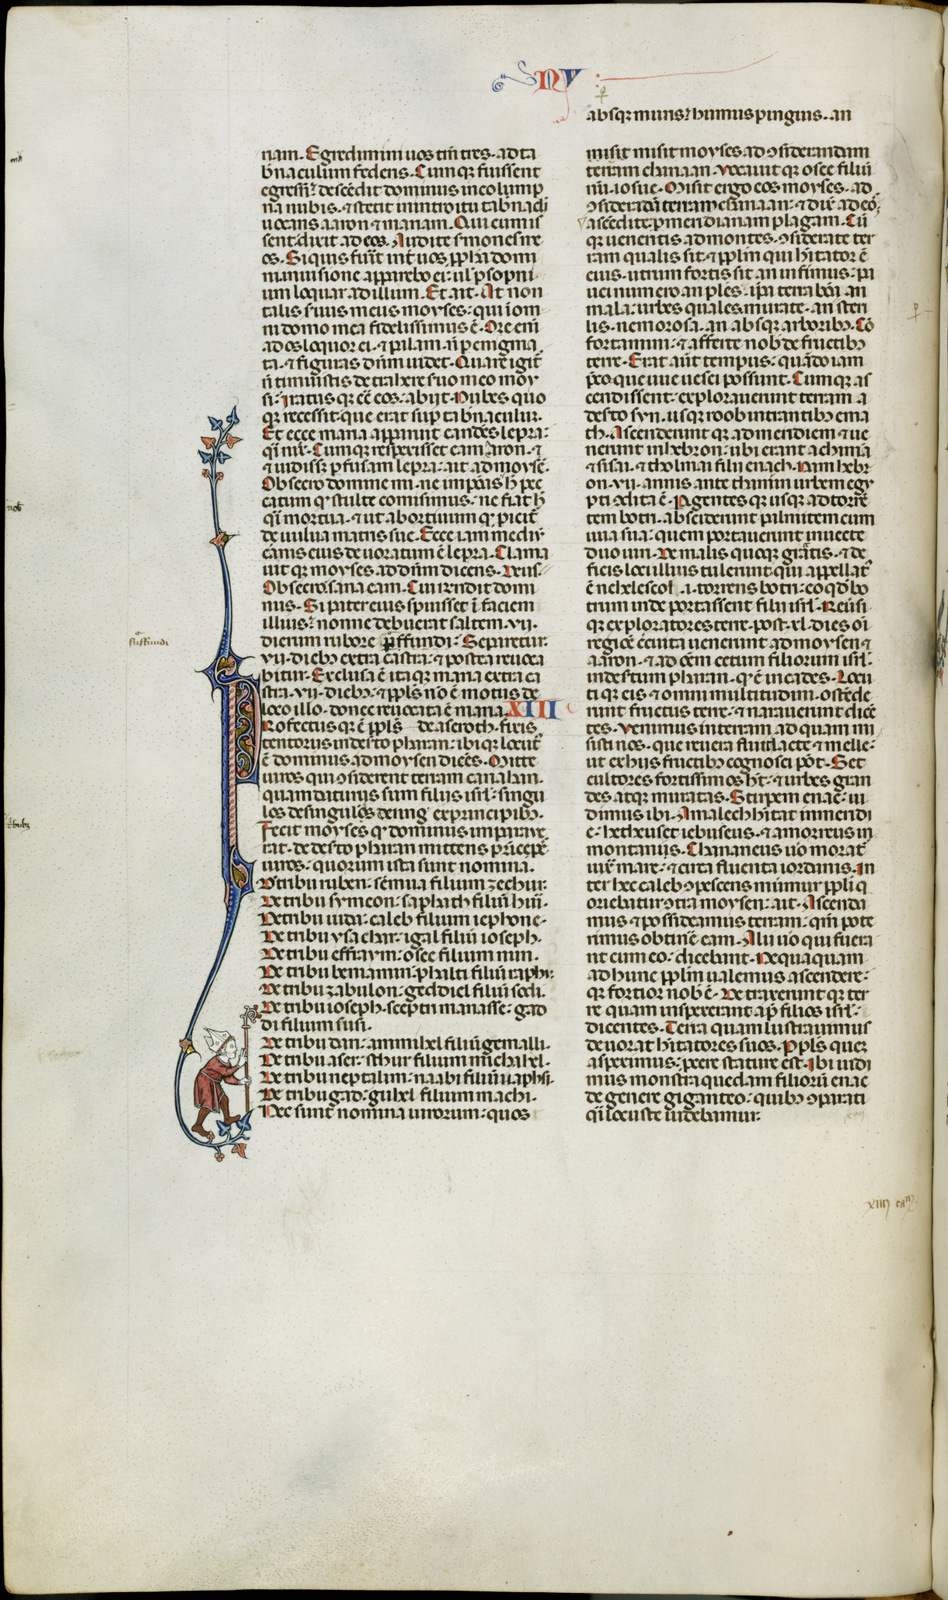 NV
absq; muris? humus pinguis. an
riam. Egredimini uos tm̄ tres. ad ta
b̄naculum federis. Cumq; fuissent
egressi? descēdit dominus in columpna
na nubis. ⁊ stetit in introitu tab̄naculi
uocans aaron ⁊ mariam. Qui cum is
sent: dixit ad eos. Audite sermones me
os. Si quis fuīt int̄ uos ppl̄xa domi
ni: in uisione apparebo ei: ul̄ p sopni
um loquar ad illum. Et ait. At non
talis seruus meus moyses: qui ī om
ni domo mea fidelissimus ē. Ore eni
ad os loquor ei. ⁊ palam. n̄ p enigma
ta. ⁊ figuras dn̄m uidet. Quare igit
n̄ timuistis detrahere seruo meo moy
si? Iratus q; cē eos: abijt. Nubes quo
q; recessit. que erat sup tab̄naculum.
Et ecce maria apparuit candēs lepra:
q̄i nix. Cumq; respexisset eam aaron. ⁊
⁊ uidiss; p fusam lepra: ait ad moysē.
Obsecro domine mi. ne imponas h̄ pec
catum q; stulte comisimus. ne fiat h̄
q̄i mortua. ⁊ ut abortiuum q; picit̄
de uulua matris sue. Ecce iam mediū
carnis eius deuoratum ē lepra. Clama
uit q; moyses ad dn̄m dicens. Deus.
Obsecro: sana eam. Cui respondit domi
nus. Si pater eius spuisset ī faciem
illius? nonne debuerat saltem .vii.
dierum rubore p̄fundi? Sepetur
.vii. dieb; extra castra: ⁊ postea reuoca
bitur. Exclusa ē itaq; maria extra ca
stra .vii. dieb;. ⁊ pp̄ls nō ē motus de
loco illo. donec reuocata ē maria. XIII
Profectus q; ē pp̄ls de aseroth. fixis
tentoriis in deserto pharan: ibiq; locut̄
ē dominus ad moysen dicēs. Mitte
uiros qui ɔsiderent terram canaham.
quam daturus sum filiis isrl̄. singu
los de singulis tribub; ex principib;.
Fecit moyses q; dominus imparaue
rat. de deserto pharan mittens pricipes
uiros: quorum ista sunt nomina.
De tribu ruben: semua filium zechur.
De tribu symeon: saphath filiū huri.
De tribu iuda: caleb filium iephone.
De tribu ysachar: igal filiū ioseph.
De tribu effraym: osee filium nun.
De tribu beniamin: phalti filiū raphu.
De tribu zabulon: geddiel filiū sodi.
De tribu ioseph. sceptri manasse: gad
di filium susi.
De tribu dan: ammihel filiū gemalli.
De tribu aser: sthur filium michahel.
De tribu neptalim: naabi filiū uaphsi.
De tribu gad: guhel filium machi.
Hec sunt nomina uirorum: quos
misit misit moyses ad ɔsiderandam
terram chanaan. Vocauit q; osee filiū
nū. iosue. Misit ergo eos moyses. ad
ɔsiderādā terram chanaan: ⁊ dix̄ ad eos.
Ascēdite p meridianam plagam. Cū
q; ueneritis ad montes. ɔsiderate ter
ram qualis sit. ⁊ pp̄lm qui h̄itator ē
eius. utrum fortis sit an infirmus: pa
uci numero an ples. ip̄a terra bōa an
mala: urbes quales. murate. an sine
lis. nemorosa. an absq; arborib;. Cō
fortamini: ⁊ afferte nob̄ de fructib;
terre. Erat aūt tempus. quādo iam
p̄coque uue uesci possunt. Cumq; as
cendissent: explorauerunt terram a
deserto syn. usq; roob intrantib; ema
th. Ascenderunt q; ad meridiem: ⁊ ue
nerunt in hebron: ubi erant achima
⁊ sisai. ⁊ tholmai filii enach. Nam hebr
on .vii. annis ante thanim urbem egy
pti ɔdita ē. Pgentes q; usq; ad torrē
tem botri. absciderunt palmitem cum
uua sua: quem portauerunt in uecte
duo uiri. De malis quoq; granatis. ⁊ de
ficis loci illius tulerunt: qui appellat̄
ē nehelescol .i. torrens botri: eo q̄d bo
trum inde portassent filii isrl̄. Reuersi
q; exploratores terre. post .xl. dies oī
regiōe cīrcuita: uenerunt ad moysen ⁊
aaron. ⁊ ad oēm cetum filiorum isrl̄
in desertum pharan. q; ē in cades. Locu
ti q; eis ⁊ omni multitudini: ostēde
runt fructus terre. ⁊ narrauerunt dicē
tes. Venimus in terram ad quam mi
sisti nos. que reuera fluit lacte ⁊ melle:
ut ex hiis fructib; cognosci pōt. Set
cultores fortissimos h̄t: ⁊ urbes gran
des atq; muratas. Stirpem enac ui
dimus ibi. Amalech h̄itat in meridi
e: hetheus et iebuseus. ⁊ amorreus in
montanis. Chananeus uō morat̄
iux̄ mare: ⁊ circa fluenta iordanis. In
ter hec caleb ɔpescens murmur pp̄li q
oriebatur ɔtra moysen: ait. Ascenda
mus ⁊ possideamus terram: qm̄ pote
rimus obtinē eam. Alii uō qui fuera
nt cum eo: dicebant. Nequaquam
ad hunc pp̄lm ualemus ascendere:
q; fortior nob̄ ē. Detraxerunt q; ter
re quam inspexerant ap̄ filios isrl̄.
dicentes. Terra quam lustrauimus
deuorat h̄itatores suos. Pp̄ls quē
aspeximus: pcere stature est. Ibi uidi
mus monstra quedam filiorū enac
de genere giganteo: quib; ɔparati
q̄i locuste uidebamur.
xiiij cam